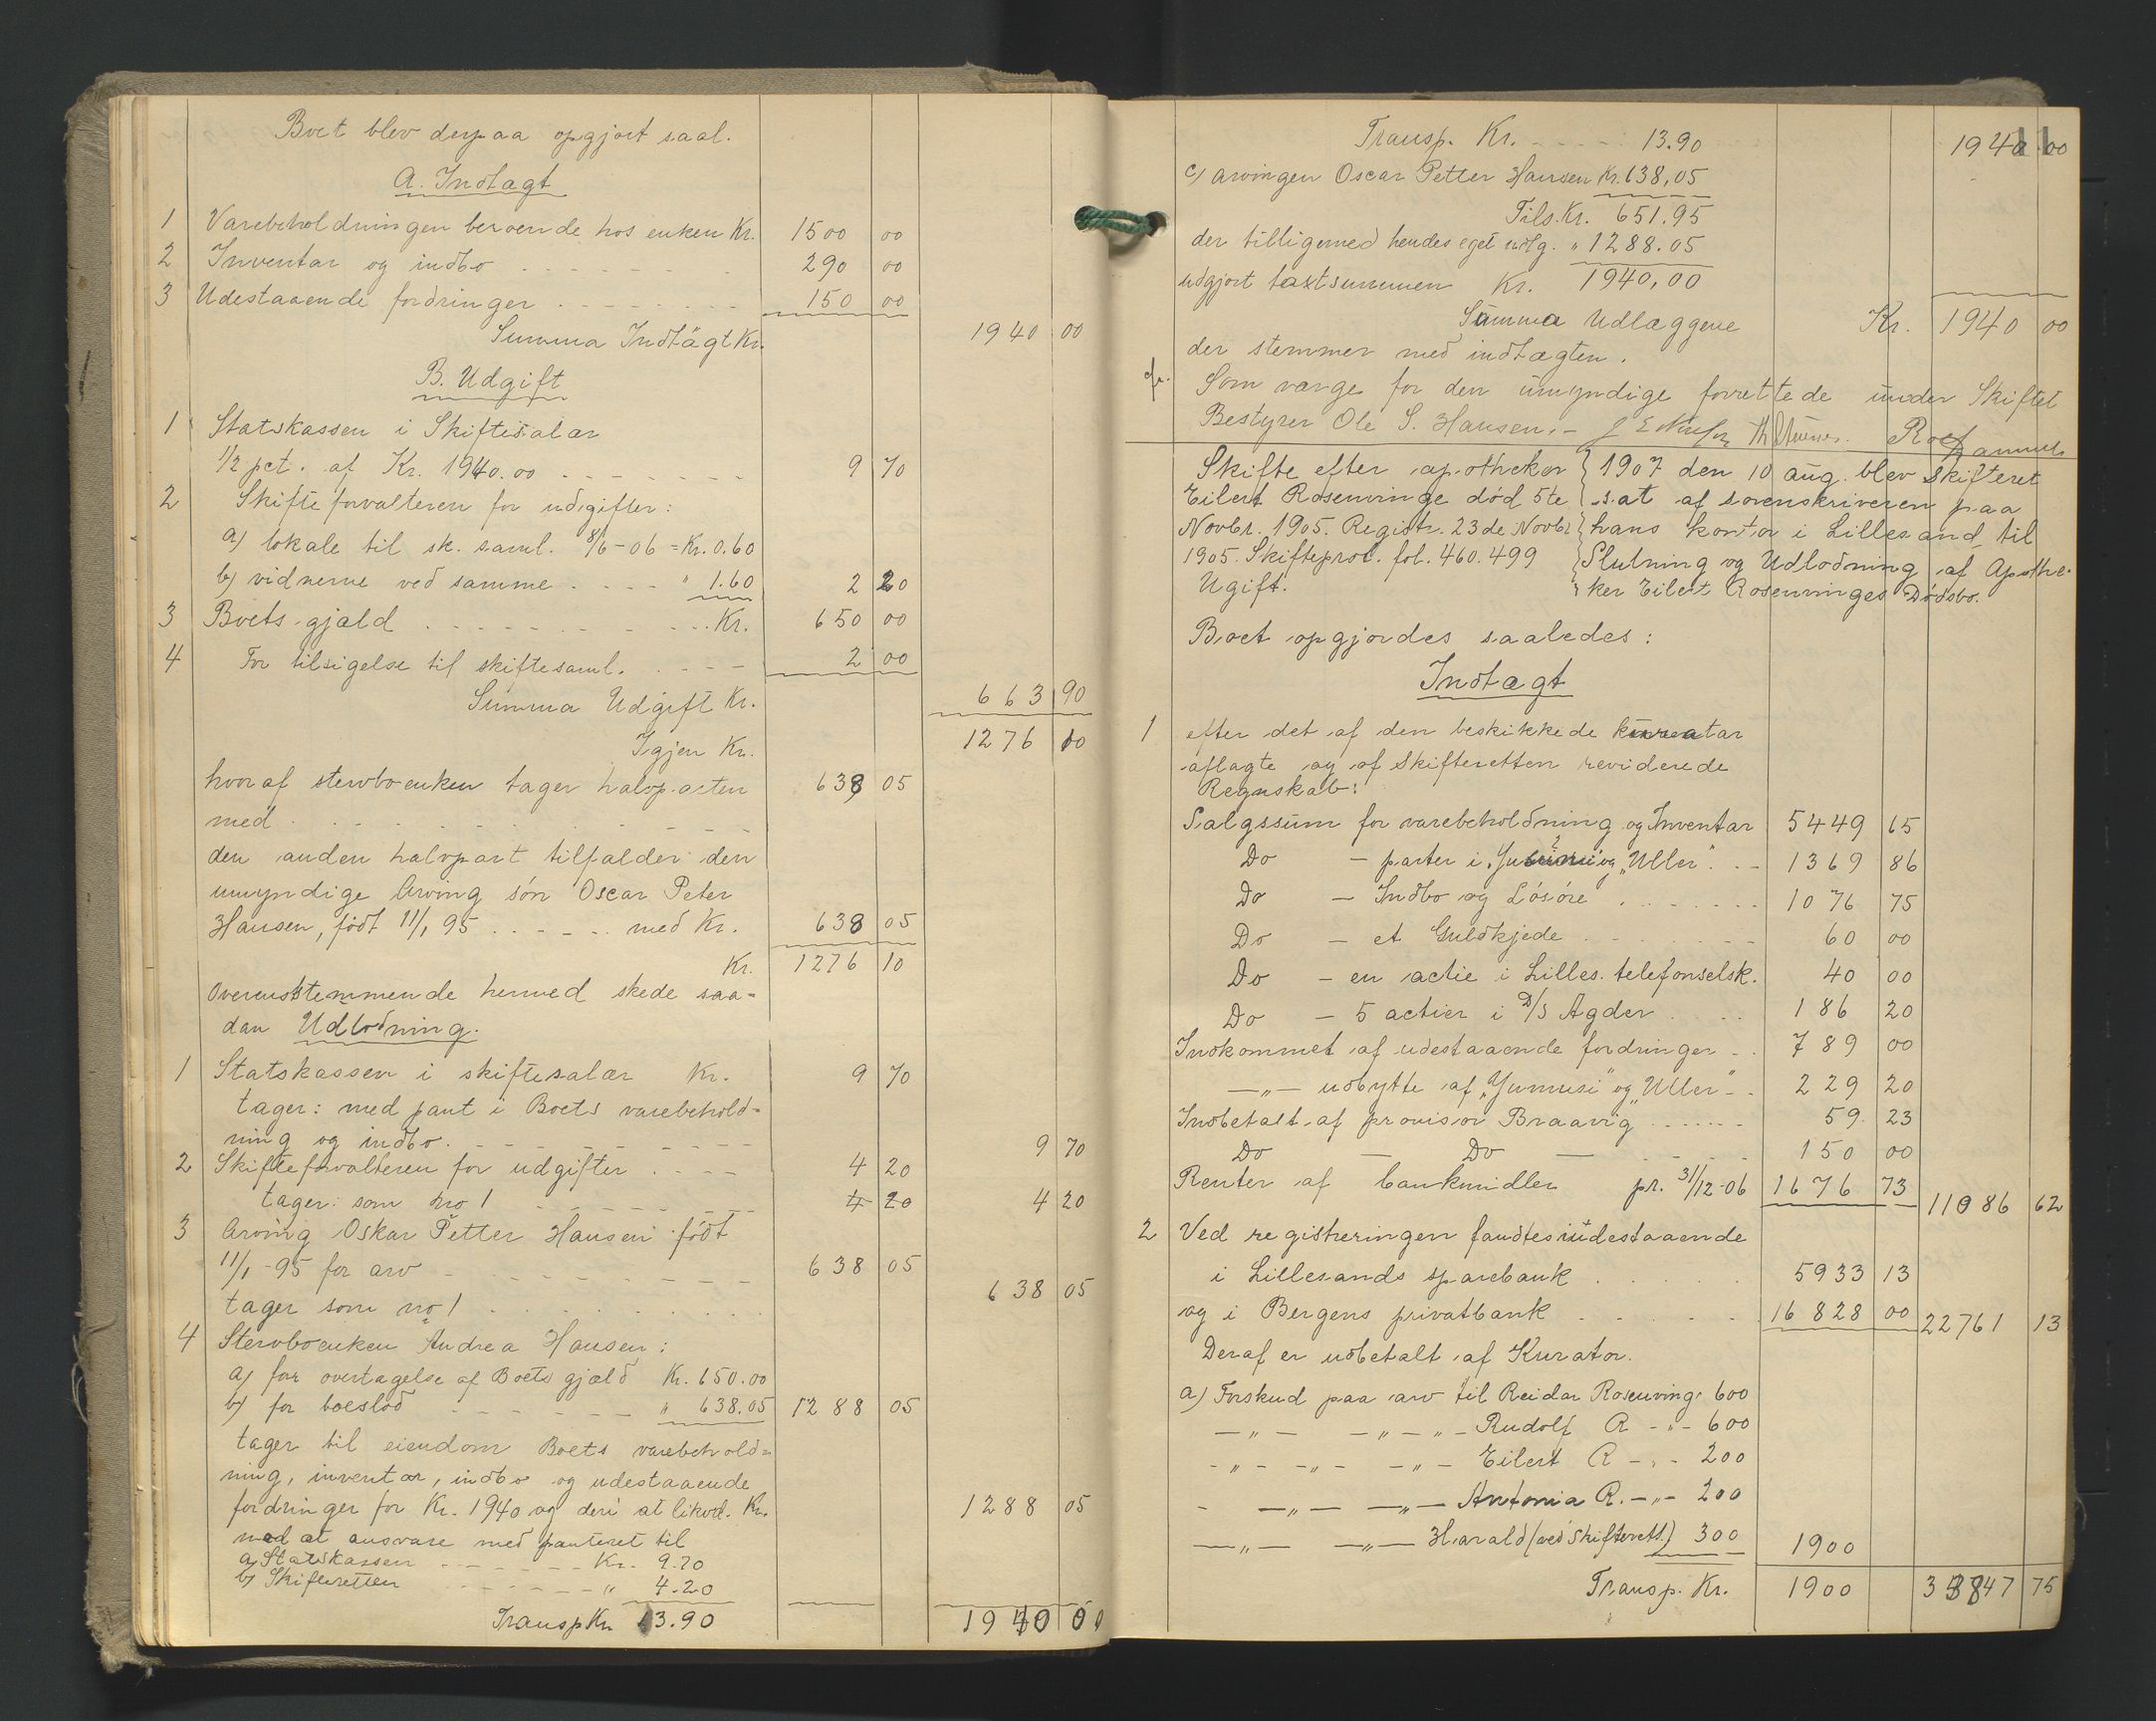 Boet blev derpaa opgjort saal.
A. Indtægt
1 Varebeholdningen beroende hos enken Kr. 1500 00
2 Inventar og indbo 290 00
3 Udestaaende fordringer 150 00
Summa Indtægt Kr. 1940 00
B. Udgift
1 Statskassen i Skiftesalær
1/2 pct. af Kr. 1940.00 9 70
2 Skifteforvalteren for udgifter:
a) lokale til sk. saml. 8/6-06 = Kr. 0.60
b) vidnerne ved samme " 1.60 2 20
3 Boets gjæld Kr. 650 00
4 For tilsigelse til skiftesaml. 2 00
Summa Udgift Kr. 663 90
Igjen Kr. 1276 10
hvoraf stervboenken tager halvparten 638 05
med
den anden halvpart tilfalder den
umyndige Arving søn Oscar Peter
Hansen, født 11/1 95 med Kr. 638 05
Kr. 1276 10
Overensstemmende hermed skede saa-
dan Udlodning.
1 Statskassen i skiftesalær Kr. 9 70
tager: med pant i Boets varebehold-
ning og indbo. 9 70
2 Skifteforvalteren for udgifter 4 20
tager: som no 1 4 20 4 20
3 Arving Oskar Petter Hansen født
11/1-95 for arv 638 05
tager som no 1 638 05
4 Stervboenken Andrea Hansen:
a) for overtagelse af Boets gjæld Kr. 650.00
b) for boeslod " 638.05 1288 05
tager til eiendom Boets varebehold-
ning, inventar, indbo og udestaaende
fordringer for Kr. 1940 og deri at likvid. Kr. 1288 05
med at ansvare med panteret til
a) Statskassen Kr. 9.70
b) Skifteretten " 4.20
Transp Kr. 13.90 1940 00
Transp. Kr. 13.90 1940 00
c) arvingen Oscar Petter Hansen Kr. 638,05
Tils. Kr. 651.95
der tilligemed hendes eget udlg. " 1288.05
udgjort taxtsummen Kr. 1940,00
Summa Udlæggene Kr. 1940 00
der stemmer med indtægten.
Som værge for den umyndige forrettede under Skiftet
Bestyrer Ole S. Hansen.
Skifte efter apotheker
Eilert Rosenvinge død 5te
Novbr. 1905. Registr. 23de Novbr
1905. Skifteprot. fol. 460. 499
Ugift.
1907 den 10 aug. blev Skifteret
sat af sorenskriveren paa
hans kontor i Lillesand til
Slutning og Udlodning af Apothe-
ker Eilert Rosenvinges Dødsbo.
Boet opgjordes saaledes:
Indtægt
1 efter det af den beskikkede kurator
aflagte og af Skifteretten reviderede
Regnskab:
Salgssum for varebeholdning og Inventar 5449 65
Do - parter i og "Uller" 1369 86
Do - Indbo og Løsøre 1076 75
Do - et Guldkjede 60 00
Do - en actie i Lilles. telefonselsk. 40 00
Do - 5 actier i D/S Agder 186 20
Indkommet af udestaaende fordringer 789 00
-"- udbytte af "Yumuri" og "Uller" 229 20
Indbetalt af provisor Braavig 59 23
Do - Do - 150 00
Renter af bankmidler pr. 31/12-06 1676 73 11086 62
2 Ved registreringen fandtes indestaaende
i Lillesands sparebank 5933 13
og i Bergens privatbank 16828 00 22761 13
Deraf er udbetalt af Kurator.
a) Forskud paa arv til Reidar Rosenving 600
-"- -"-"- Rudolf R -"- 600
-"- -"- -"- Eilert R -"- 200
- -"- -"- Antonia R. -"- 200
-"- -"- Harald (ved Skifterett.) 300 1900
Transp. Kr. 1900 33847 75